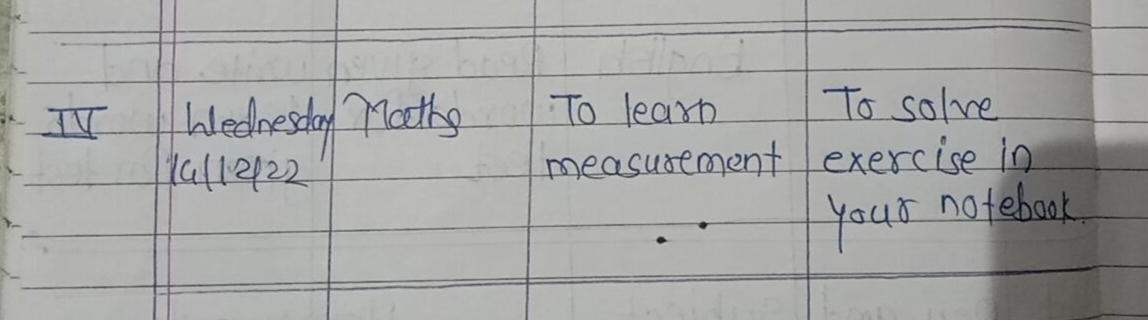 IV Wednesday Maths To learn To solve
14/12/22 measurement exercise in
your notebook.